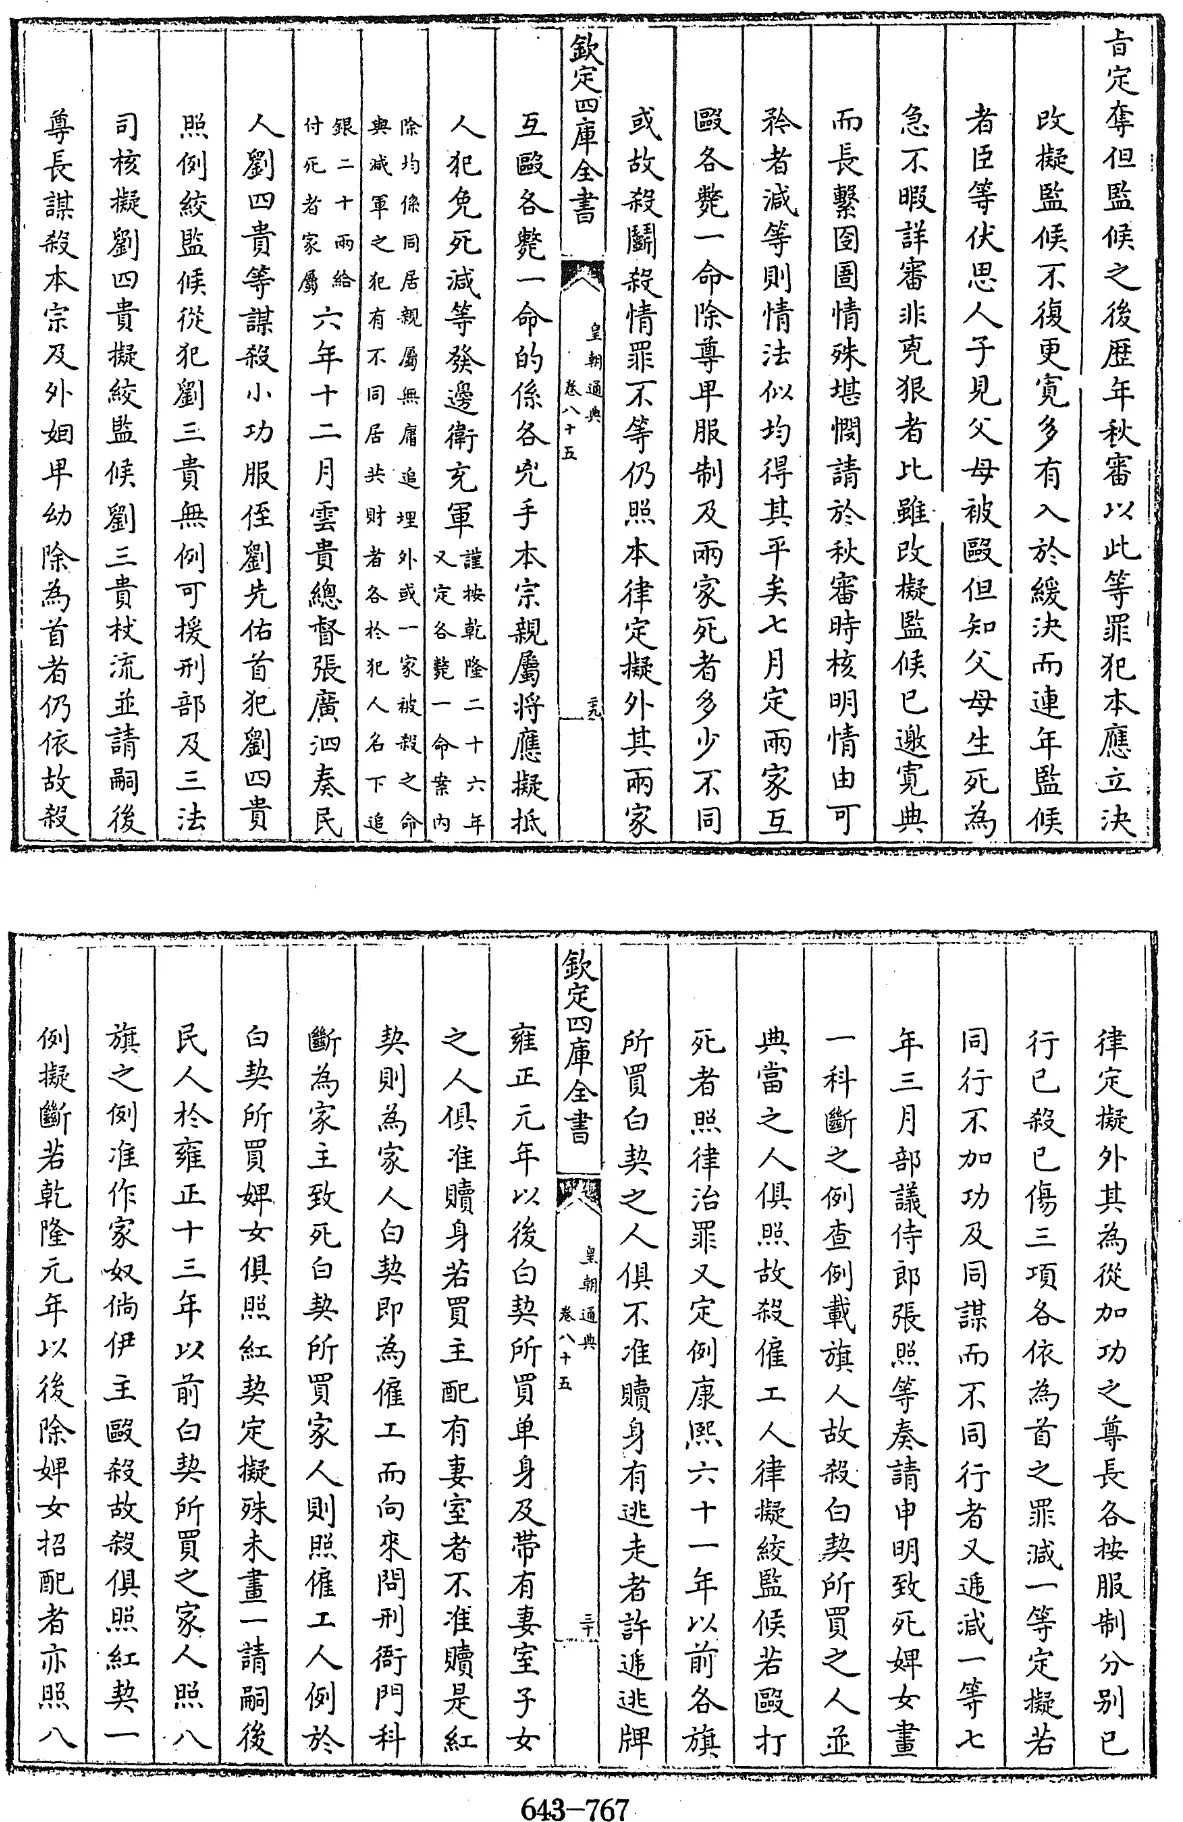 旨定奪但監候之後歴年秋審以此等罪犯本應立決
改擬監候不復更寛多有入於緩決而連年監候
者臣等伏思人子見父母被毆但知父母生死為
急不暇詳審非兇狠者比雖改擬監候已邀寛典
而長繫囹圄情殊堪憫請於秋審時核明情由可
矜者減等則情法似均得其平矣七月定兩家互
毆各斃一命除尊卑服制及兩家死者多少不同
或故殺鬭殺情罪不等仍照本律定擬外其兩家
欽定四庫全書
皇朝通典
卷八十五
二九
互毆各斃一命的係各兇手本宗親屬將應擬抵
人犯免死減等發邊衛充軍謹按乾隆二十六年
又定各斃一命案內
除均係同居親屬無庸追埋外或一家被殺之命
與減軍之犯有不同居共財者各於犯人名下追
銀二十兩給
付死者家屬六年十二月雲貴總督張廣泗奏民
人劉四貴等謀殺小功服侄劉先佑首犯劉四貴
照例絞監候從犯劉三貴無例可援刑部及三法
司核擬劉四貴擬絞監候劉三貴杖流並請嗣後
尊長謀殺本宗及外姻卑幼除為首者仍依故殺
律定擬外其為從加功之尊長各按服制分别已
行已殺已傷三項各依為首之罪減一等定擬若
同行不加功及同謀而不同行者又遞減一等七
年三月部議侍郎張照等奏請申明致死婢女畫
一科斷之例查例載旗人故殺白契所買之人並
典當之人俱照故殺僱工人律擬絞監候若毆打
死者照律治罪又定例康熙六十一年以前各旗
所買白契之人俱不准贖身有逃走者許遞逃牌
欽定四庫全書
皇朝通典
卷八十五
三十
雍正元年以後白契所買单身及帶有妻室子女
之人俱准贖身若買主配有妻室者不准贖是紅
契則為家人白契即為僱工而向來問刑衙門科
斷為家主致死白契所買家人則照僱工人例於
白契所買婢女俱照紅契定擬殊未畫一請嗣後
民人於雍正十三年以前白契所買之家人照八
旗之例准作家奴倘伊主毆殺故殺俱照紅契一
例擬斷若乾隆元年以後除婢女招配者亦照八
643-767